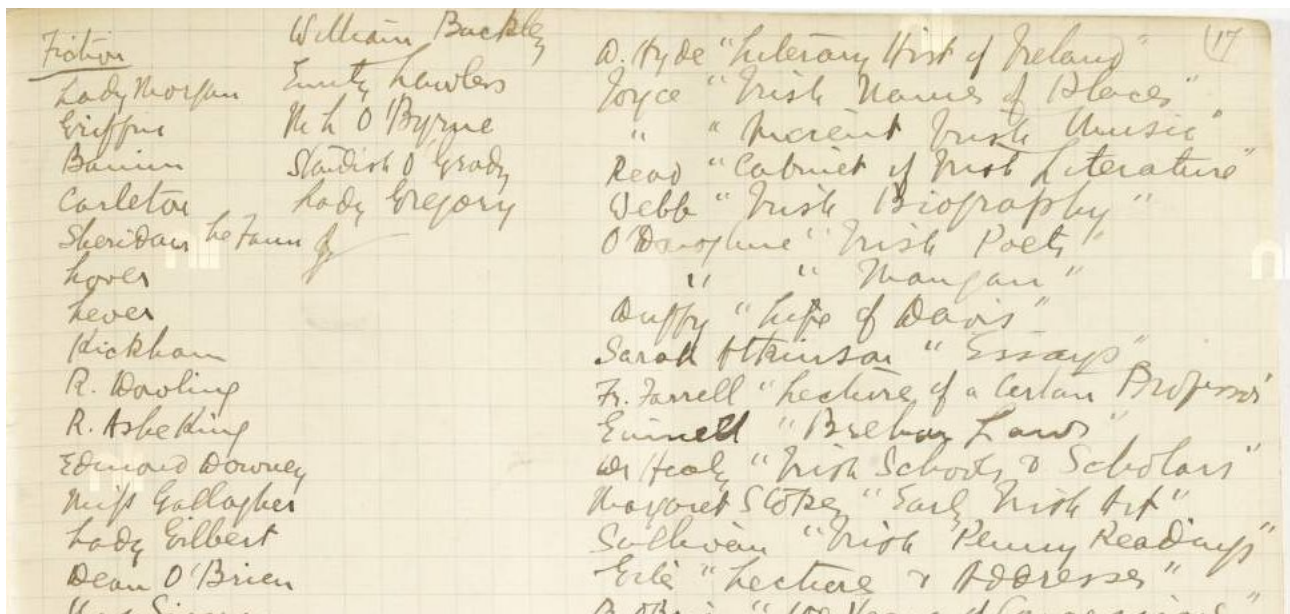 Fiction
Lady Morgan
Griffin
Banim
Carleton
Sheridan Le Fanu
Lover
Lever
Kickham
R. Dowling
R. Ashe King
Edmond Downey
Miss Gallagher
Lady Gilbert
Dean O'Brien
William Buckley
Emily Lawless
M L O'Byrne
Standish O'Grady
Lady Gregory
17
D. Hyde "Literary Hist of Ireland"
Joyce "Irish Names of Places"
" "Ancient Irish Music"
Read "Cabinet of Irish Literature"
Webb "Irish Biography"
O'Donoghue "Irish Poets"
" " Mangan"
Duffy "Life of Davis"
Sarah Atkinson "Essays"
Fr. Farrell "Lecture of a Certain Professor
Ginnell "Brehon Laws"
Dr Healy "Irish Schools & Scholars"
Margaret Stokes "Early Irish Art"
Sullivan "Irish Penny Readings"
"Lecture & Addresses"